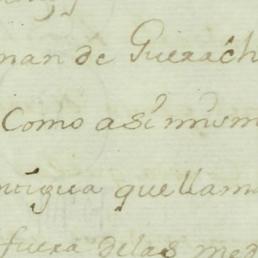 man de Guerach
Como asi mism
ntigua que llama
fuera de las med